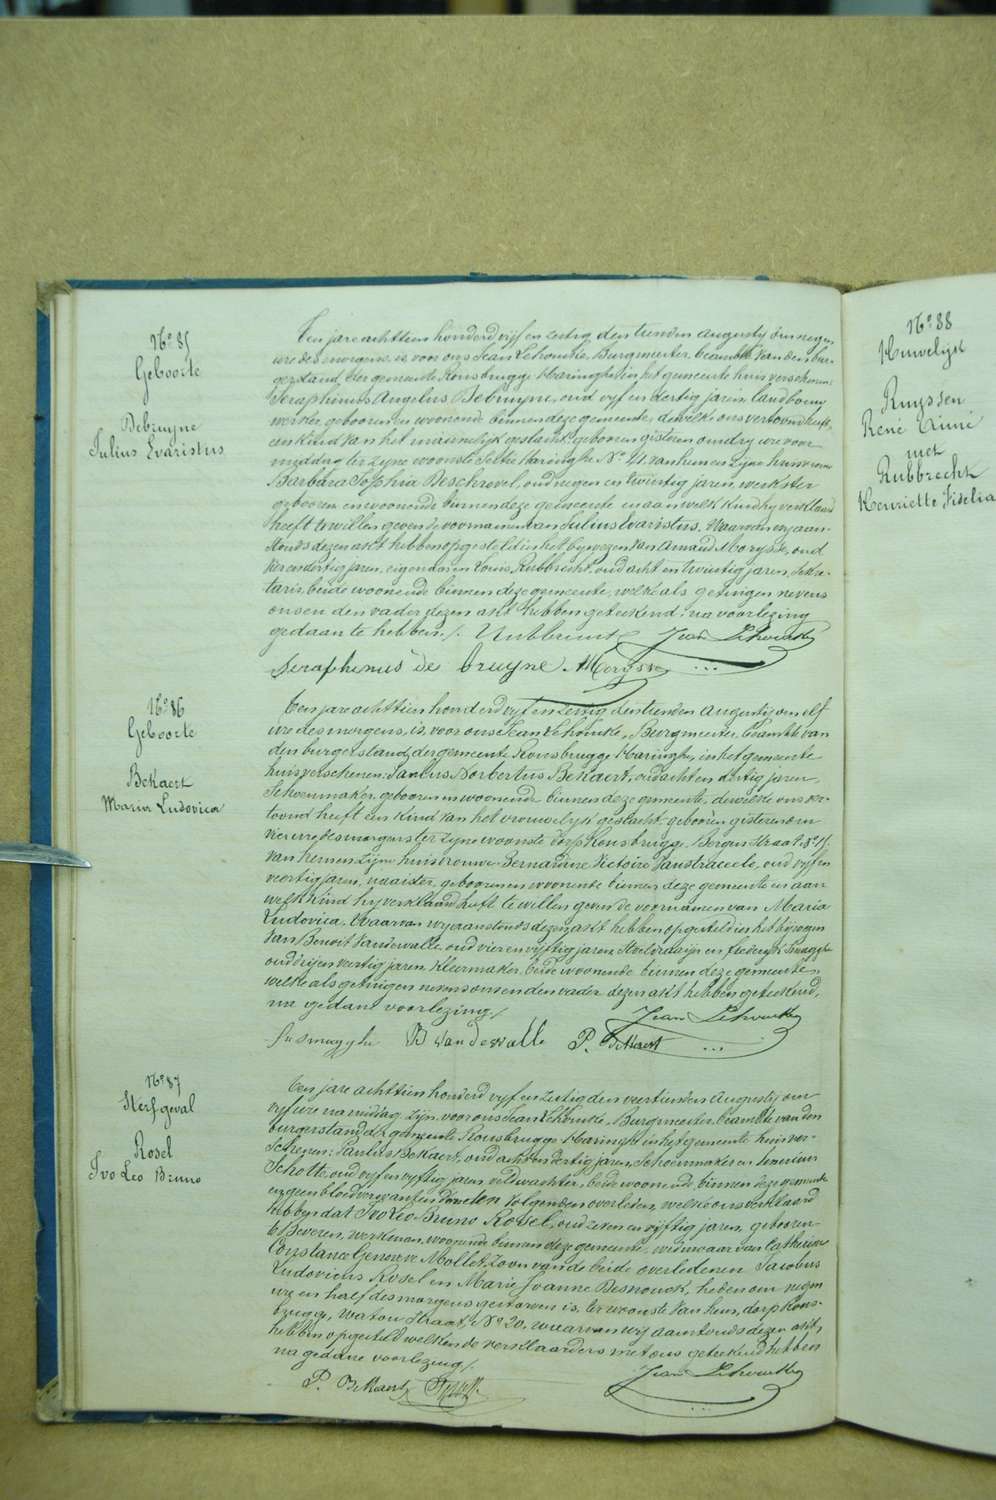 No 85
Geboorte
Debruyne
Julius Evaristus
Ten jare achttien honderd vijf en zestig den tienden Augusty om negen
ure des morgens, is voor ons Jean Lehoucke, Burgmeester, beambte van den bur-
gerstand, der gemeente Rousbrugge Haringhe in het gemeente huis verschenen:
Seraphinus Angelus Debruyne, oud vijf en dertig jaren, landbouw
werker, gebooren en woonende binnen deze gemeente, dewelke ons vertoond heeft
een kind van het mannelijk geslacht, gebooren gisteren om dry ure voor
middag ter zyne woonste Sectie Haringhe No 41, van hem en zijne huisvrouw
Barbara Sophia Deschrevel, oud negen en twintig jaren, werkster
gebooren en woonende binnen deze gemeente en aan welk kind hy verklaard
heeft te willen geven de voornamen van Julius Evaristus. Waarvan wy aan-
stonds dezen akt hebben opgesteld in het bywezen van Amand Morysse, oud
en dertig jaren, eigendaren Louis Rubbrecht, oud acht en twintig jaren, sekre-
taris, beide woonende binnen deze gemeente, welke als getuigen nevens
ons en den vader dezen akt hebben geteekend: na voorlezing
gedaan te hebben ./. Rubbrecht Jean Lehoucke
Seraphinus de bruyne AMorysse
No 86
Geboorte
Bekaert
Maria Ludovica
Ten jare achttien honderd vijf en zestig den tienden Augusty om elf
ure des morgens, is voor ons Jean Lehoucke, Burgmeester, Beambte van
den burgerstand, der gemeente Rousbrugge Haringhe, in het gemeente
huis verschenen: Paulus Norbertus Bekaert, oud acht en dertig jaren,
Schoenmaker, gebooren en woonende binnen deze gemeente, dewelke ons ver-
toond heeft een kind van het vrouwelijk geslacht, gebooren gisteren om
vier ure des morgens ter zyne woonste dorp Rousbrugge, Bergen straat, No
van hem en zyne huisvrouw Bernardine Victoire Vanstraceele, oud vijf en
veertig jaren, naaister, gebooren en woonende binnen deze gemeente en aan
welk kind hy verklaard heeft te willen geven de voornamen van Maria
Ludovica. Waarvan wy aanstonds dezen akt hebben opgesteld in het bijwezen
van Benoit Vandewalle, oud vier en vyftig jaren, Stoeldraaijer en Frederyk Smagghe
oud drij en veertig jaren, Kleermaker, beide woonende binnen deze gemeente
welke als getuigen nevens ons en den vader dezen akt hebben geteekend,
na gedane voorlezing ./. Jean Lehoucke
fr Smagghe B Vandewalle P. Bekaert
No 87
Sterfgeval
Rosel
Ivo Leo Bruno
Ten jare achttien honderd vijf en zestig den veertienden Augusty om
vijf ure namiddag zijn voor ons Jean Lehoucke, Burgmeester, beambte van den
burgerstand der gemeente Rousbrugge Haringhe in het gemeente huis ver-
schenen: Paulus Bekaert, oud acht en dertig jaren, Schoenmaker en
Schotte, oud vyf en vyftig jaren, veldwachter, beide woonende binnen deze gemeente
en geen bloedverwanten van den volgenden overleden, welke ons verklaard
hebben dat Ivo Leo Bruno Rosel, oud zeven en vyftig jaren, gebooren
te Beveren, werkman, woonende binnen deze gemeente, weduwaar van Catherine
Constance Genoveve Mollet, Zoon van de beide overledenen Jacobus
Ludovicus Rosel en Marie Joanne Desnouck, heden om negen
ure en half des morgens gestorven is, ter woonste van hem, dorp Rous-
brugge, Watou straat, No 20. waarvan wij aanstonds dezen akt,
hebben opgesteld welken de verklaarders met ons geteekend hebben
na gedane voorlezing ./.
P. Bekaert Jean Lehoucke
No 88
Huwelijk
Ruyssen
René Aimé
met
Rubbrecht
Henriette Fidelia